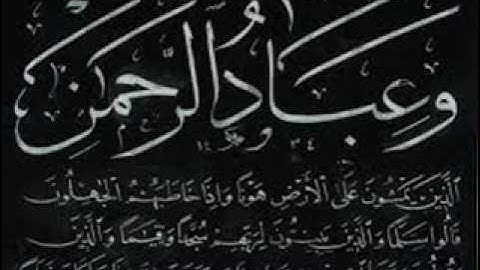 وَعِبَادُ الرَّحْمٰنِ
الَّذِينَ يَمْشُونَ عَلَى الْأَرْضِ هَوْنًا وَإِذَا خَاطَبَهُمُ الْجَاهِلُونَ
قَالُوا سَلَامًا وَالَّذِينَ يَبِيتُونَ لِرَبِّهِمْ سُجَّدًا وَقِيَامًا وَالَّذِينَ